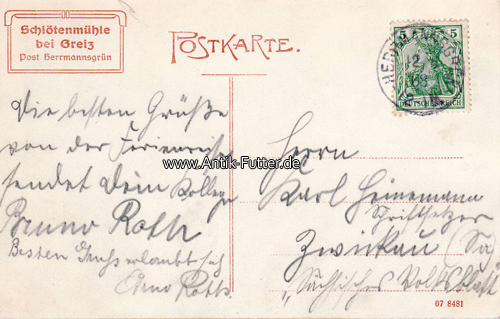 Schlötenmühle
bei Greiz
Post Herrmannsgrün
POSTKARTE.
5 5
DEUTSCHES REICH
HERRMANNSGRÜN
12
Die besten Grüße
von der Ferienreise
sendet Dein Kollege
Bruno Roth
Besten Gruß erlaubt sich
Roth.
www.Antik-Futter.de
Herrn
Karl Heinemann
Schriftsetzer
Zwickau (Sa)
"Sächsisches Volksblatt"
07 8481